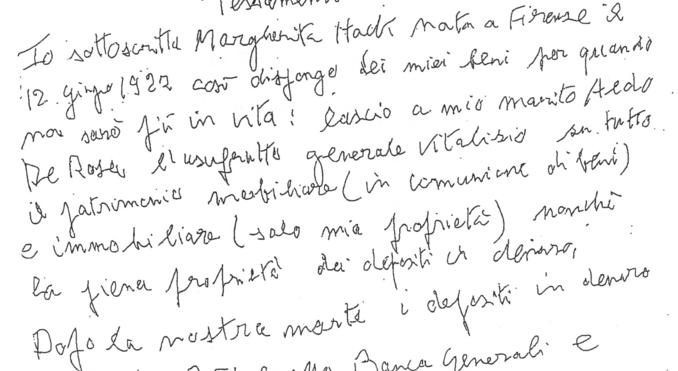 Testamento
Io sottoscritta Margherita Hack nata a Firenze il
12 giugno 1922 così dispongo dei miei beni per quando
non sarò più in vita: lascio a mio marito Aldo
De Rosa l'usufrutto generale vitalizio su tutto
il patrimonio mobiliare (in comunione di beni)
e immobiliare (solo mia proprietà) nonché
la piena proprietà dei depositi in denaro,
Dopo la nostra morte i depositi in denaro
Banca Generali e